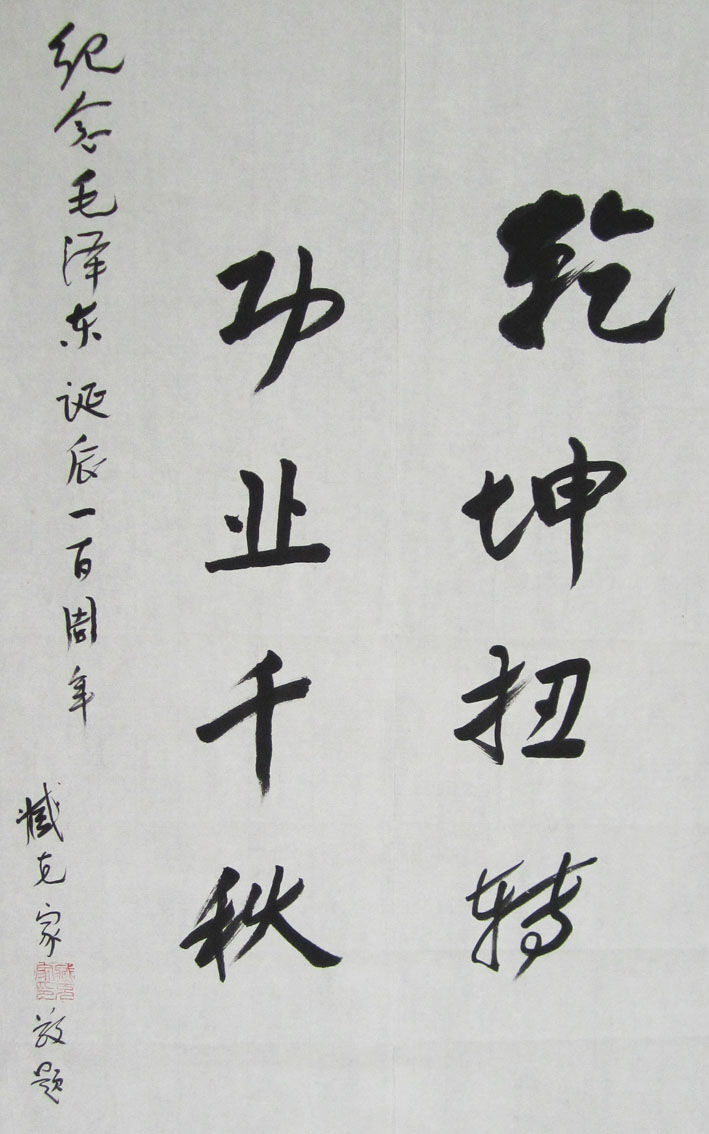 乾坤扭转
功业千秋
纪念毛泽东诞辰一百周年
臧克家敬题